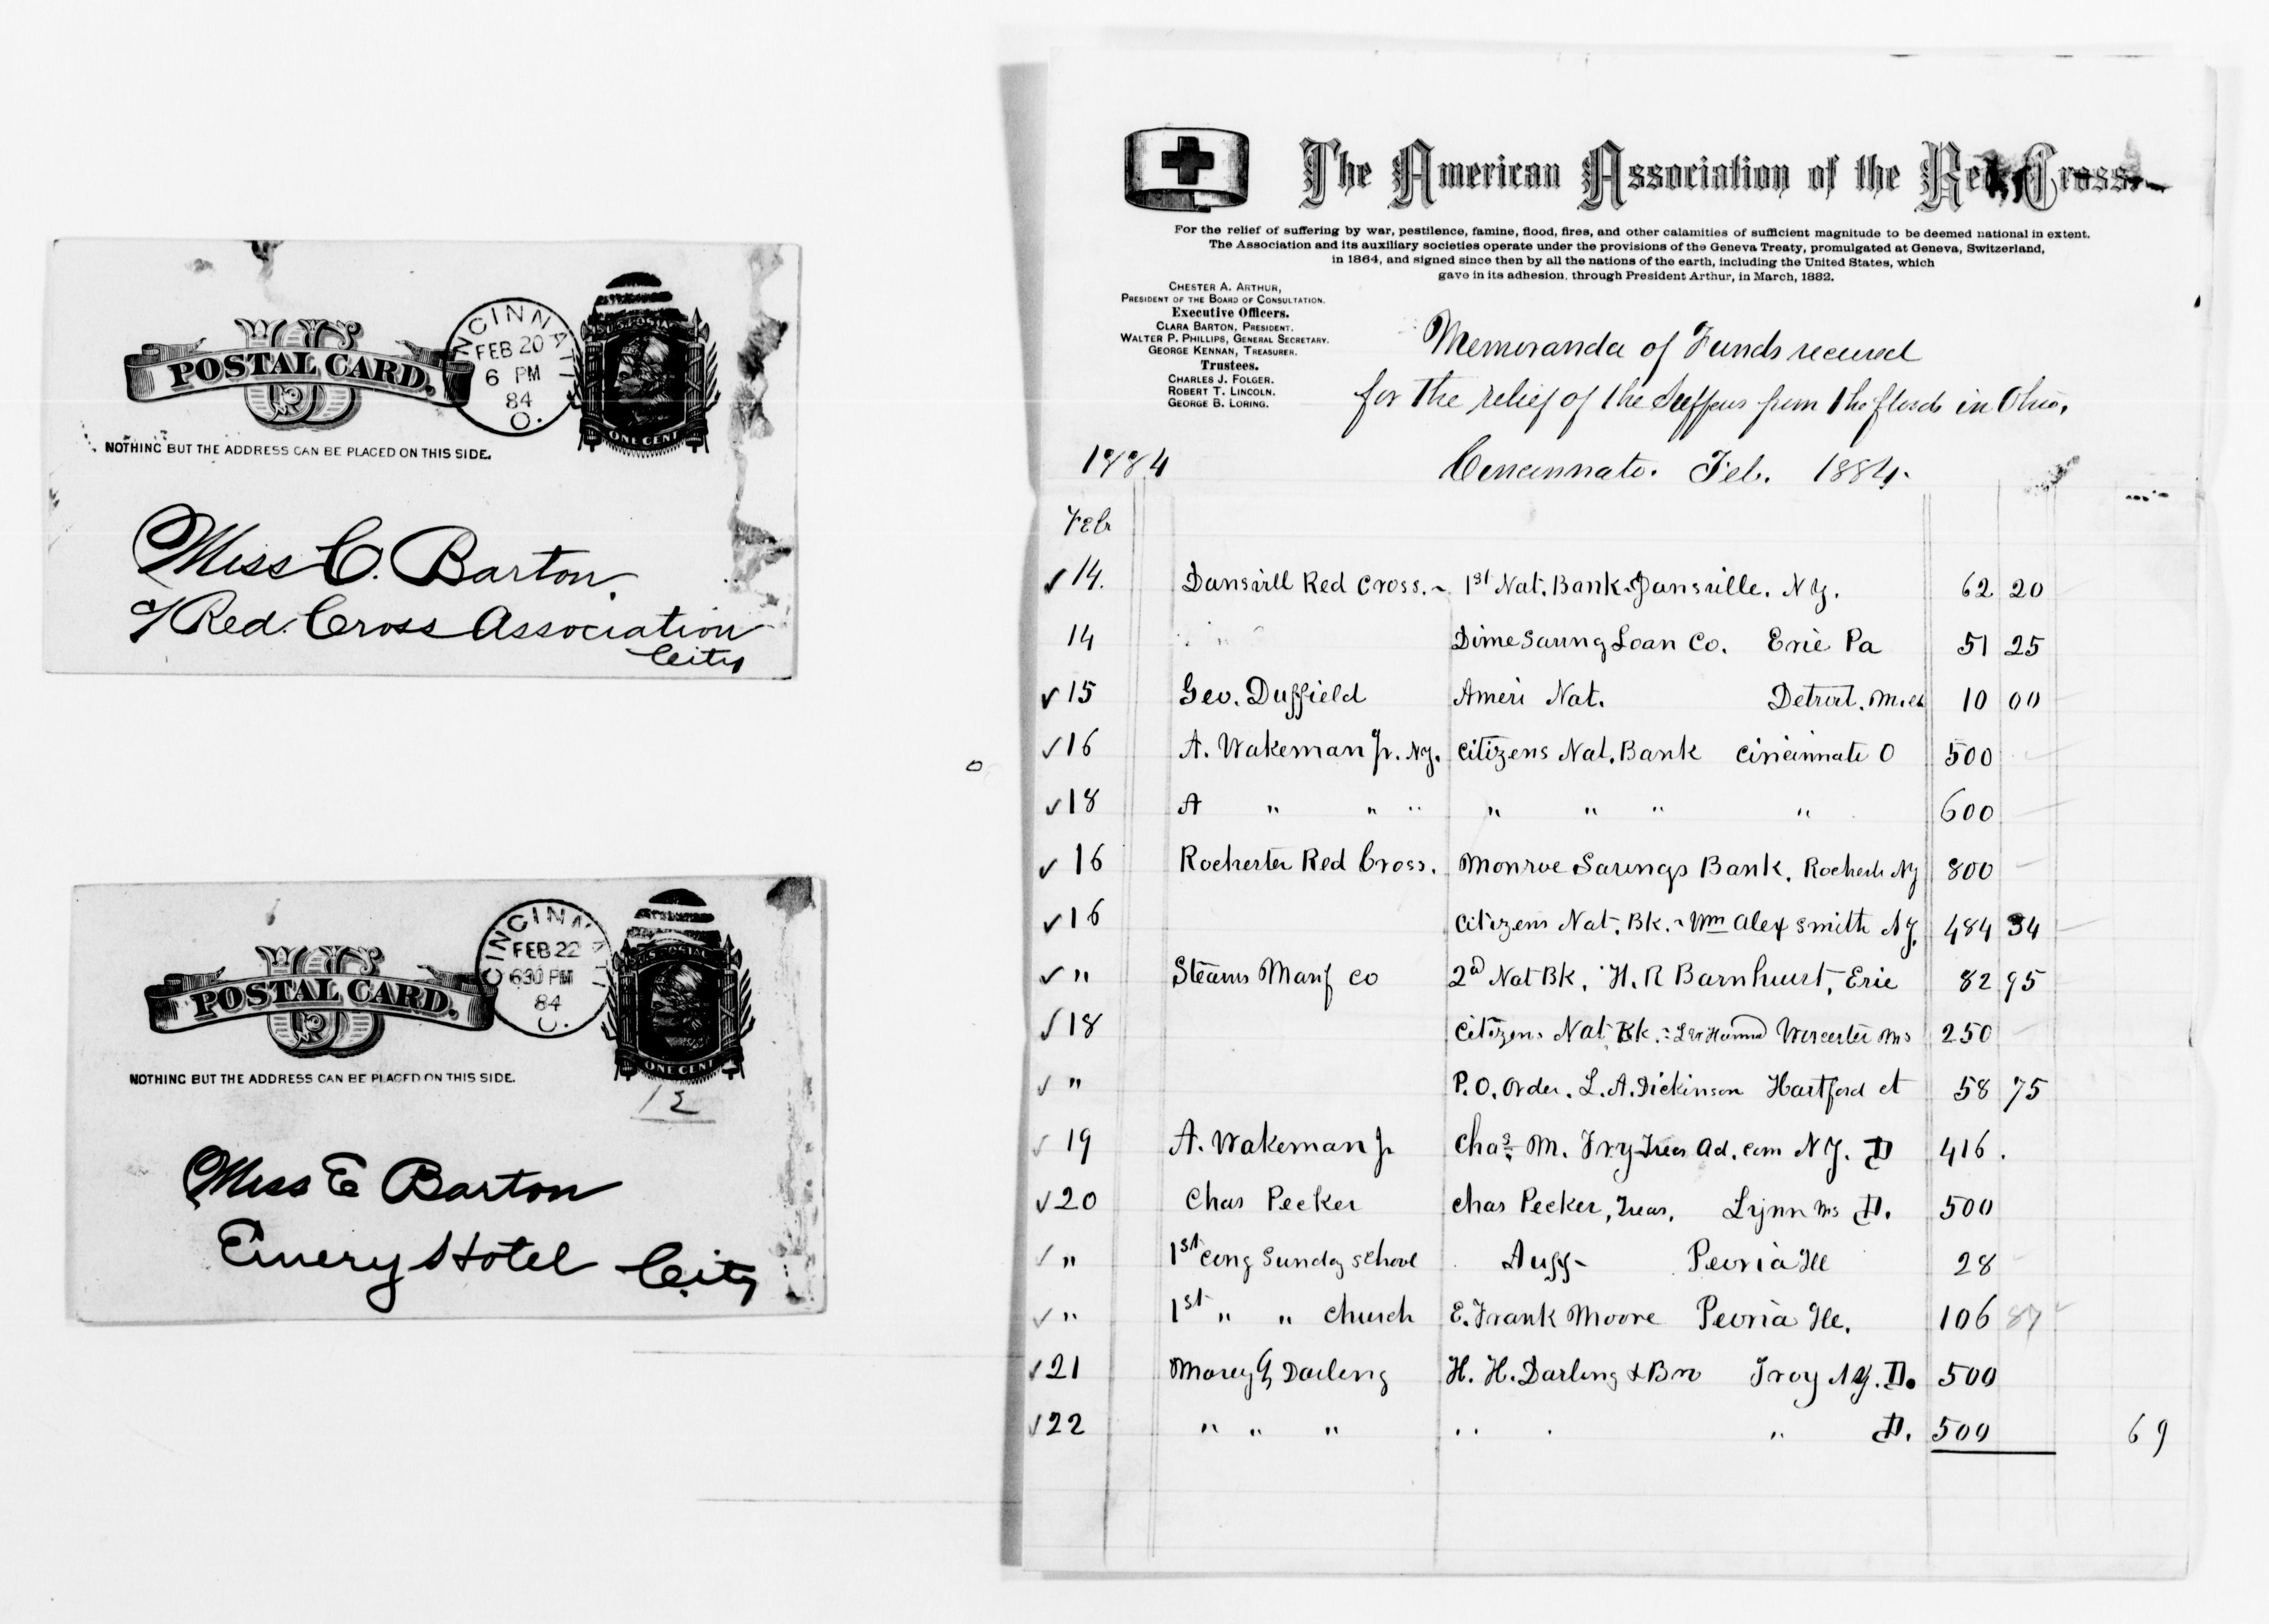 CINCINNATI
FEB 20
6 PM
84
O.
U.S. POSTAGE
ONE CENT
US
POSTAL CARD.
NOTHING BUT THE ADDRESS CAN BE PLACED ON THIS SIDE.
Miss C. Barton,
c/ Red Cross Association
City
CINCINNATI
FEB 22
630 PM
84
O.
U.S. POSTAGE
ONE CENT
US
POSTAL CARD.
NOTHING BUT THE ADDRESS CAN BE PLACED ON THIS SIDE.
12
Miss C Barton
Emery Hotel City
The American Association of the Red Cross.
For the relief of suffering by war, pestilence, famine, flood, fires, and other calamities of sufficient magnitude to be deemed national in extent.
The Association and its auxiliary societies operate under the provisions of the Geneva Treaty, promulgated at Geneva, Switzerland,
in 1864, and signed since then by all the nations of the earth, including the United States, which
gave in its adhesion, through President Arthur, in March, 1882.
CHESTER A. ARTHUR,
PRESIDENT OF THE BOARD OF CONSULTATION.
Executive Officers.
CLARA BARTON, PRESIDENT.
WALTER P. PHILLIPS, GENERAL SECRETARY.
GEORGE KENNAN, TREASURER.
Trustees.
CHARLES J. FOLGER.
ROBERT T. LINCOLN.
GEORGE B. LORING.
Memoranda of Funds received
for the relief of the Suffers from the floods in Ohio,
1884 Cincinnati. Feb. 1884.
Feb
✓ 14. Dansvill Red Cross. ~ 1st Nat. Bank Dansville. N.Y. 62 20
14 " " Dime Saving Loan Co. Erie Pa 51 25
✓ 15 Geo. Duffield Ameri Nat. Detroit. Mich 10 00
✓ 16 A. Wakeman Jr. N.Y. Citizens Nat. Bank Cincinnati O 500
✓ 18 A " " " " " " " 600
✓ 16 Rochester Red Cross. Monroe Savings Bank. Rochest NY 800
✓ 16 Citizens Nat. Bk. ~ Wm Alex Smith N.Y. 484 34
✓ " Stearns Manf Co 2d Nat Bk. H. R Barnhurst, Erie 82 95
✓ 18 Citizens Nat Bk. Worcester Ms 250
✓ " P. O. Order. L. A. Dickinson Hartford ct 58 75
✓ 19 A. Wakeman Jr Chas. M. Fry Treas Ad. Com N.Y. D 416.
✓ 20 Chas Pecker Chas Pecker, Treas. Lynn Ms D. 500
✓ " 1st Cong Sunday School Peoria Ill 28
✓ " 1st " " Church E. Frank Moore Peoria Ill. 106 87
✓ 21 Darling H. H. Darling & Bro Troy N.Y. D. 500
✓ 22 " " " " " " D. 500
69